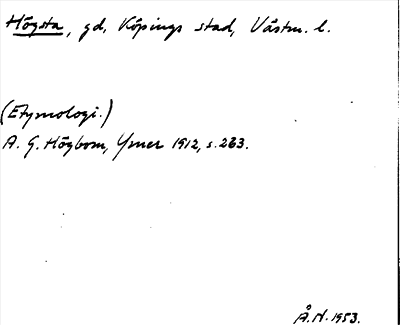 Högsta, gd, Köpings stad, Västm. l.
(Etymologi.)
A. G. Högbom, Ymer 1912, s. 263.
Å.N. 1953.